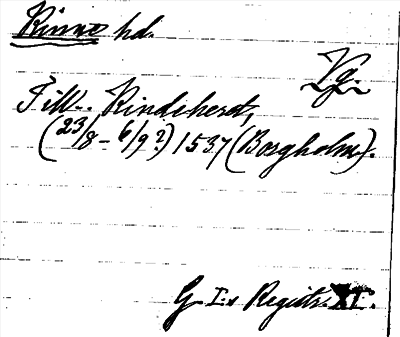 Kinne hd.
Vg.
Till. Kindeheret,
(23/8 – 6/9?) 1537 (Borgholm).
G. I:s Registr. XI.